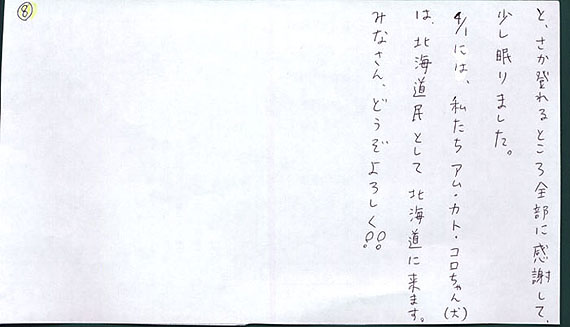 と、さか登れるところ全部に感謝して、
少し眠りました。
4/1には、私たちアム・カト・コロちゃん(犬)
は、北海道民として北海道に来ます。
みなさん、どうぞよろしく!!
⑧